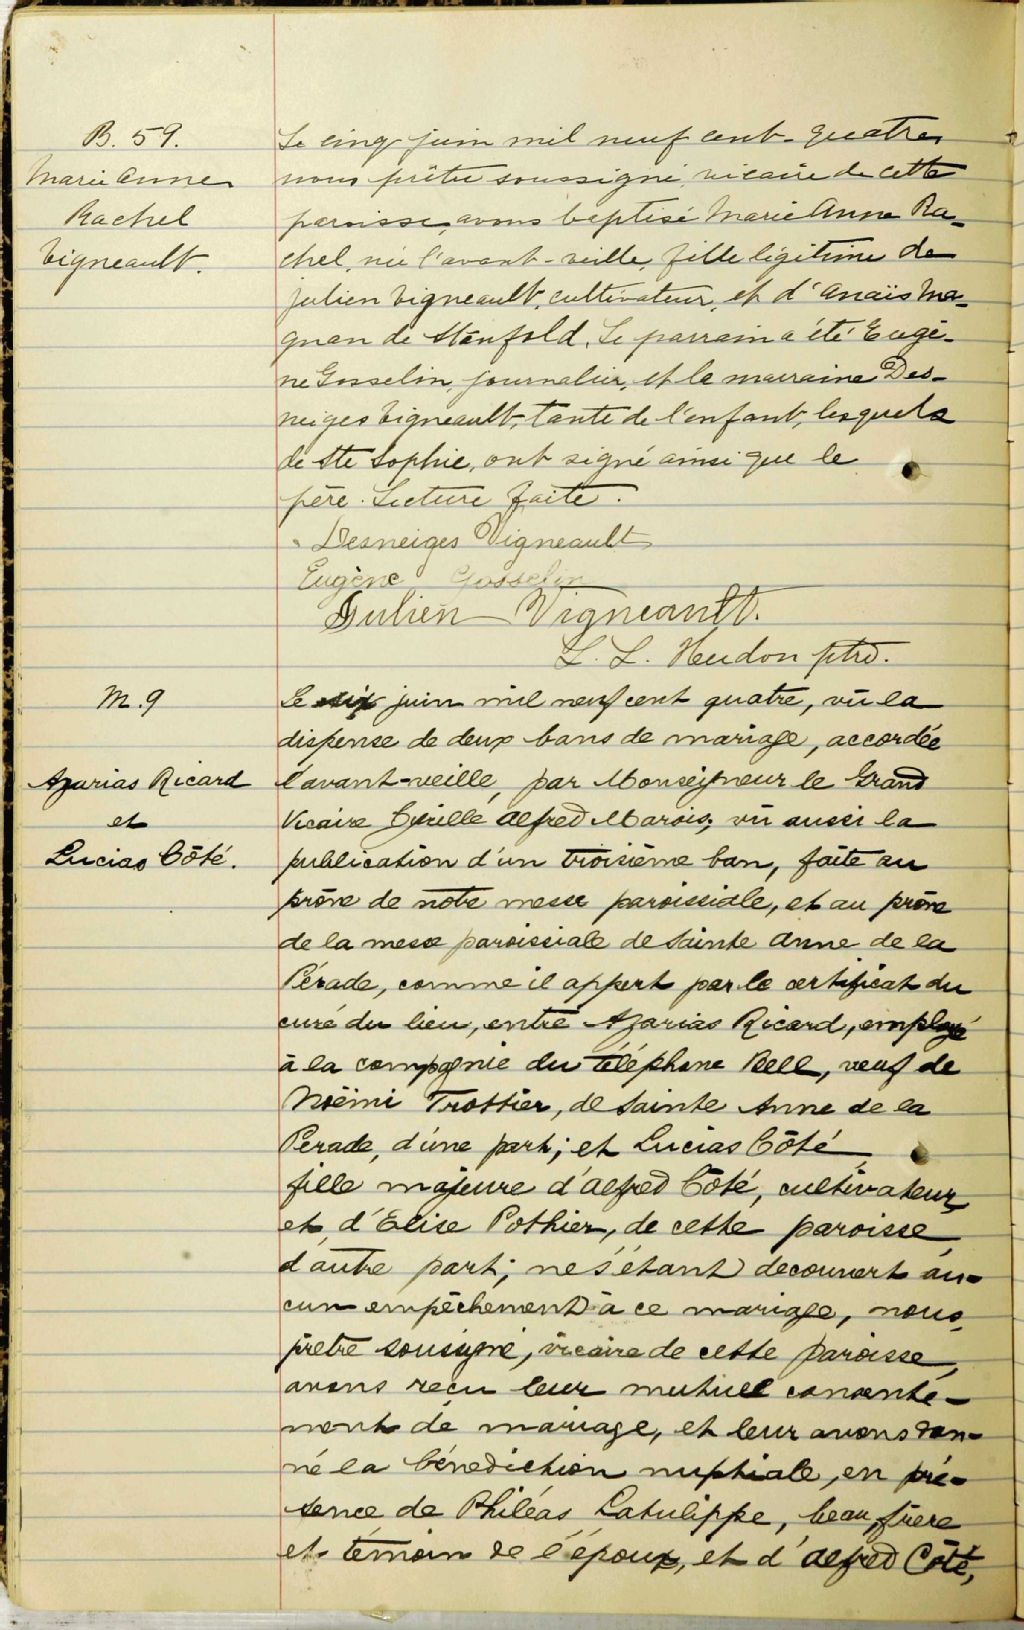 B. 59.
Marie Anne
Rachel
Vigneault.
Le cinq juin mil neuf cent-quatre,
nous prêtre soussigné, vicaire de cette
paroisse, avons baptisé Marie Anne Ra-
chel, née l'avant-veille, fille légitime de
Julien Vigneault, cultivateur, et d'Anaïs Ma-
gnan de Stanfold. Le parrain a été Eugè-
ne Gosselin, journalier, et la marraine Des-
neiges Vigneault, tante de l'enfant, lesquels
de Ste Sophie, ont signé ainsi que le
père. Lecture faite.
Desneiges Vigneault
Eugène Gosselin
Julien Vigneault.
L. L. Hudon ptre.
M. 9
Azarias Ricard
et
Lucias Côté.
Le six juin mil neuf cent quatre, vû la
dispense de deux bans de mariage, accordée
l'avant-veille, par Monseigneur le Grand
Vicaire Cyrille Alfred Marois, vû aussi la
publication d'un troisième ban, faite au
prône de notre messe paroissiale, et au prône
de la messe paroissiale de Sainte Anne de la
Pérade, comme il appert par le certificat du
curé du lieu, entre Azarias Ricard, employé
à la compagnie du téléphone Bell, veuf de
Noëmi Trottier, de Sainte Anne de la
Perade, d'une part; et Lucias Côté,
fille majeure d'Alfred Côté, cultivateur,
et d'Elise Pothier, de cette paroisse,
d'autre part; ne s'étant decouvert au-
cun empêchement à ce mariage, nous,
prêtre sousigné, vicaire de cette paroisse,
avons reçu leur mutuel consente-
ment de mariage, et leur avons don-
né la bénediction nuptiale, en pré-
sence de Philéas Latulippe, beau-frère
et témoin de l'époux, et d'Alfred Côté,